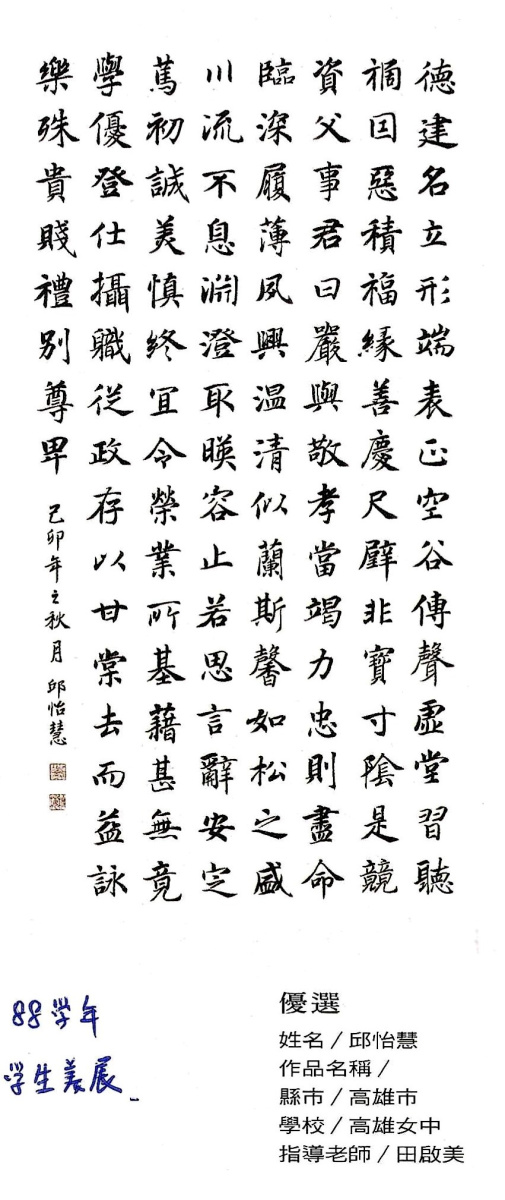 德建名立形端表正空谷傳聲虛堂習聽
禍因惡積福緣善慶尺璧非寶寸陰是競
資父事君曰嚴與敬孝當竭力忠則盡命
臨深履薄夙興温清似蘭斯馨如松之盛
川流不息淵澄取暎容止若思言辭安定
篤初誠美慎終宜令榮業所基藉甚無竟
學優登仕攝職從政存以甘棠去而益詠
樂殊貴賤禮別尊卑
己卯年之秋月 邱怡慧
88学年
学生美展
優選
姓名/邱怡慧
作品名稱/
縣市/高雄市
學校/高雄女中
指導老師/田啟美